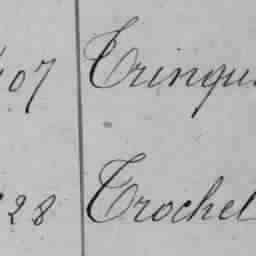 07 Tringu
28 Trochel